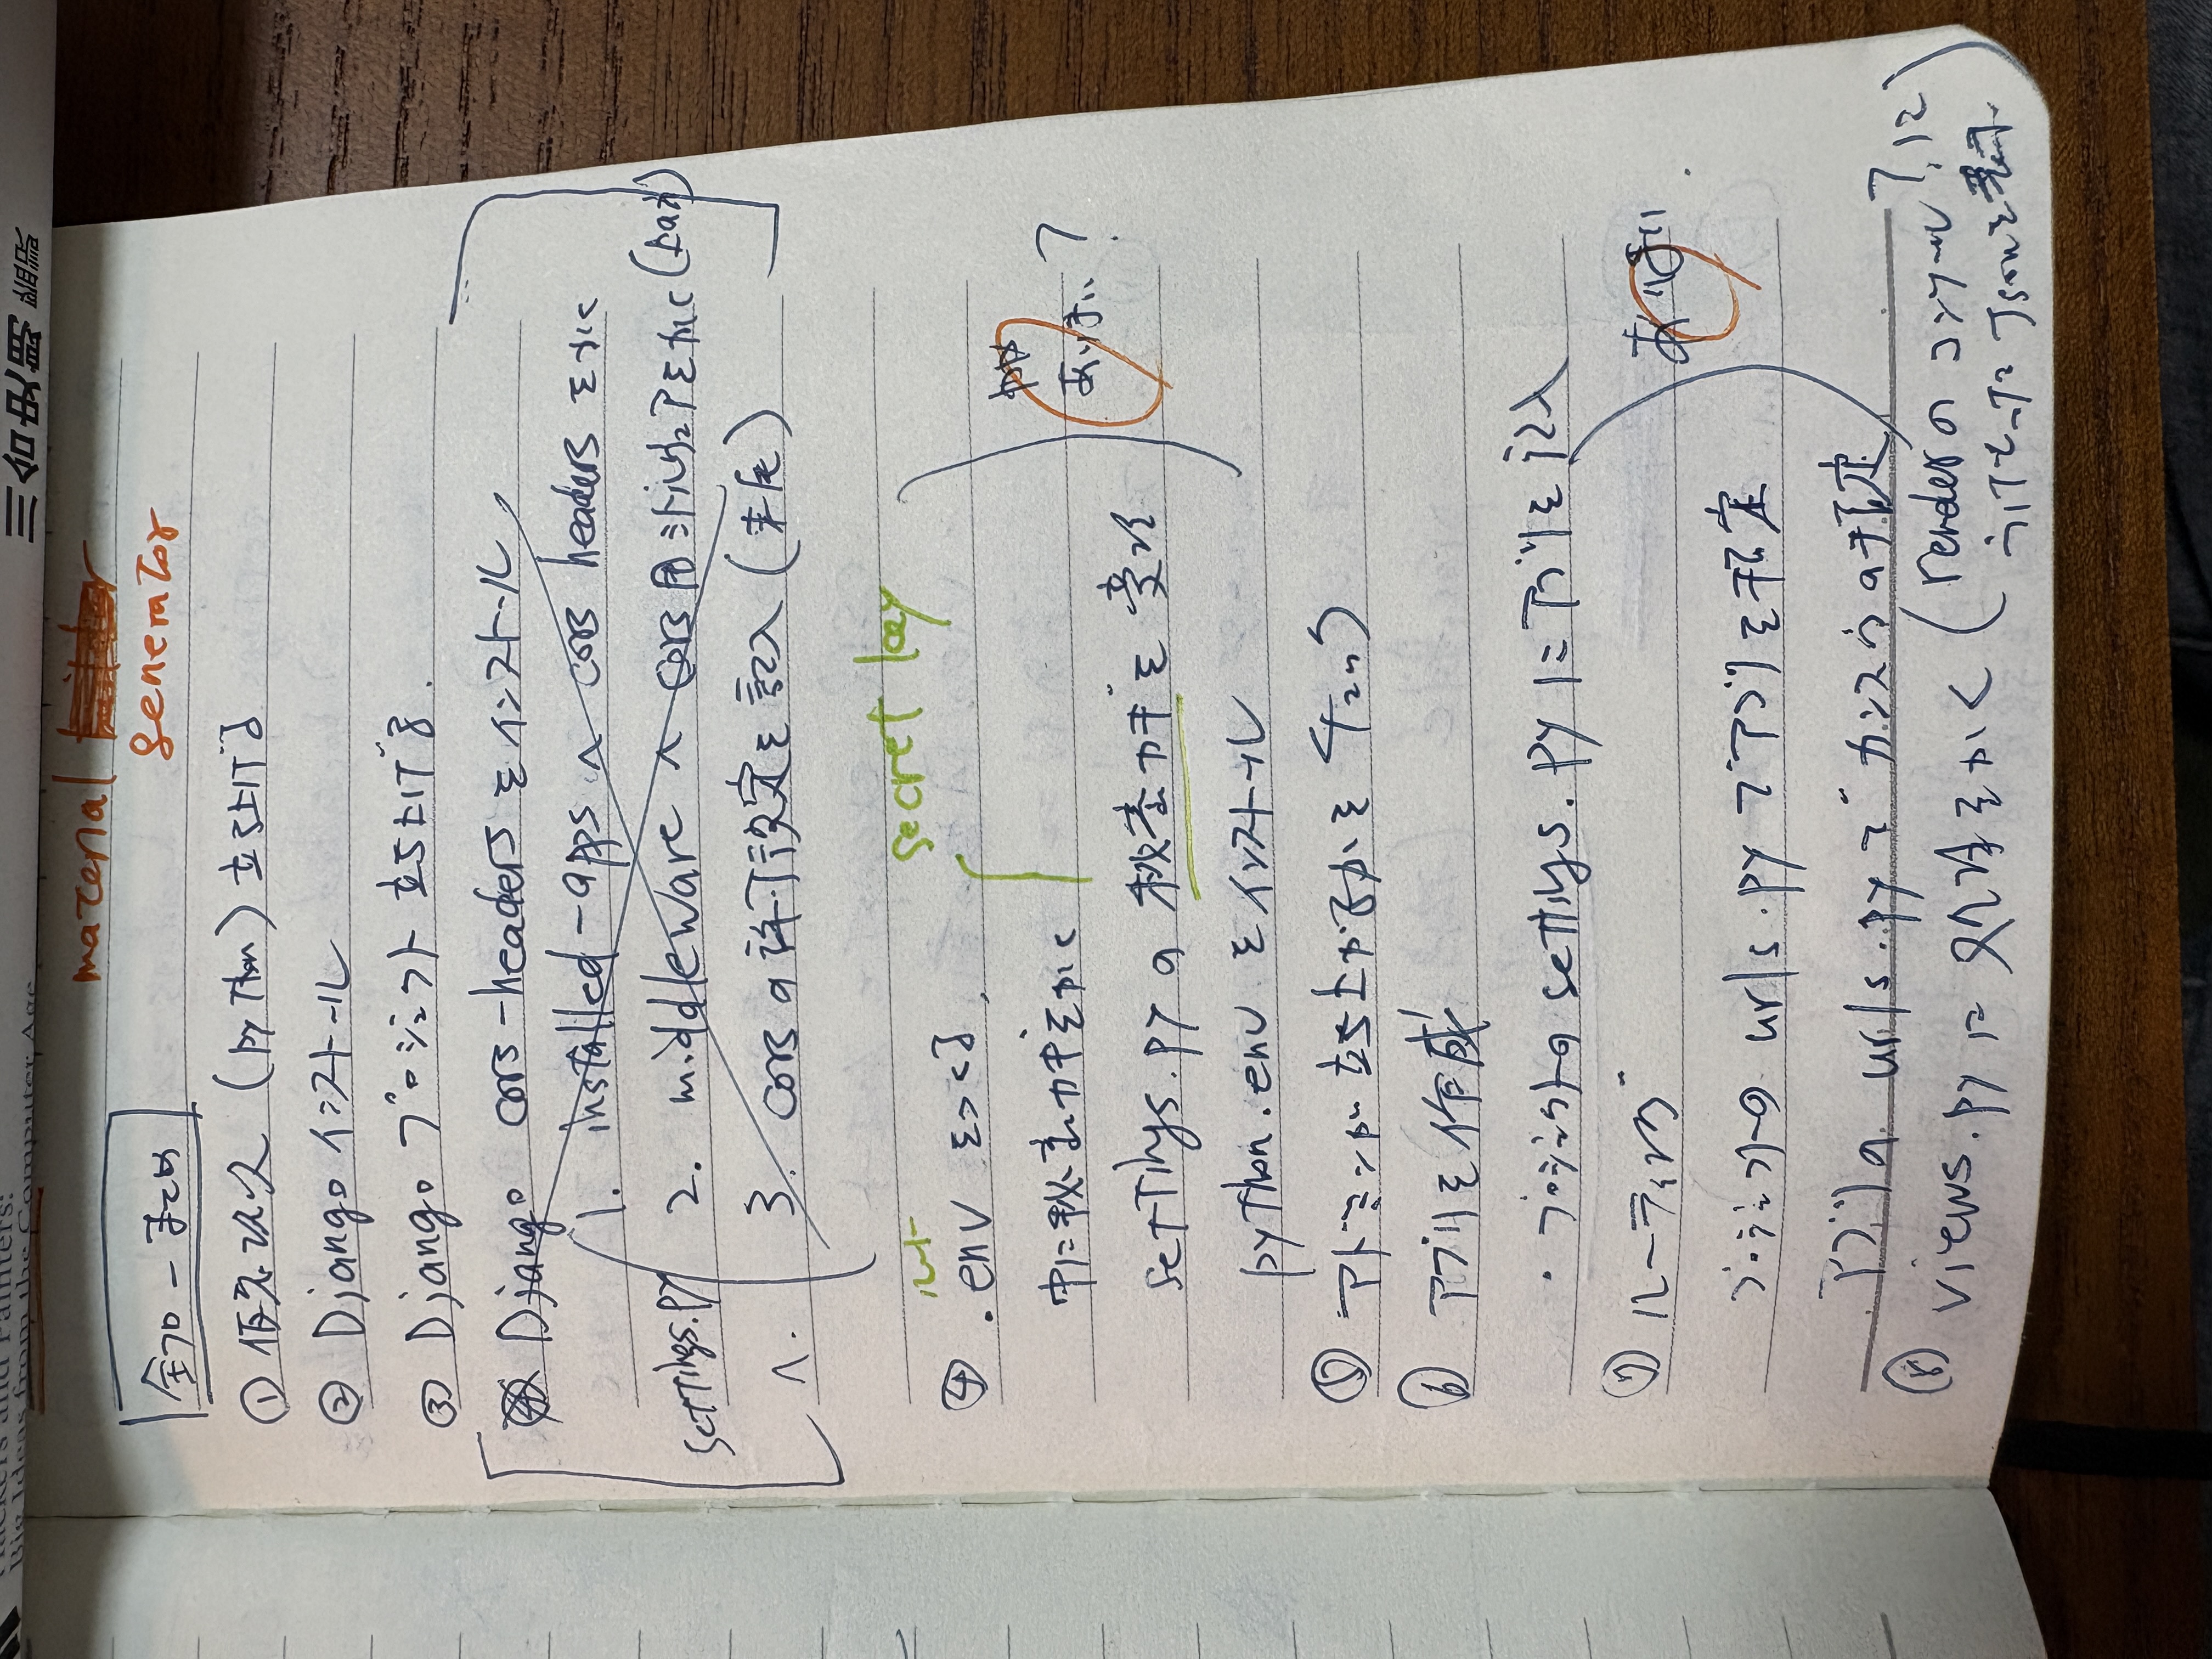 Hackers and Painters:
Big Ideas from the Computer Age
material
generator
全フローまとめ
① 仮想環境 (python) 立ち上げる
② Django インストール
③ Django プロジェクト 立ち上げる.
Django cors-headers をインストール
settings.py へ.
1. installed-apps へ cors headers をかく
2. middleware へ cors用ミドルウェアをかく (上の方)
3. corsの許可設定を記入 (末尾)
ルート
secret key
④ .env をつくる.
中に秘密カギをかく
あいまい?
settings.pyの秘密カギを変更
python.env をインストール
⑤ アドミンが立ち上がるかをチェック
⑥ アプリを作成
・プロジェクトの settings.py にアプリを記入
⑦ ルーティング
あいまい
プロジェクトの urls.py でアプリを指定
アプリの urls.py で カンスウの指定
⑧ views.py に 処理をかく (renderの コンソール?に
うけとった Jsonを表示)